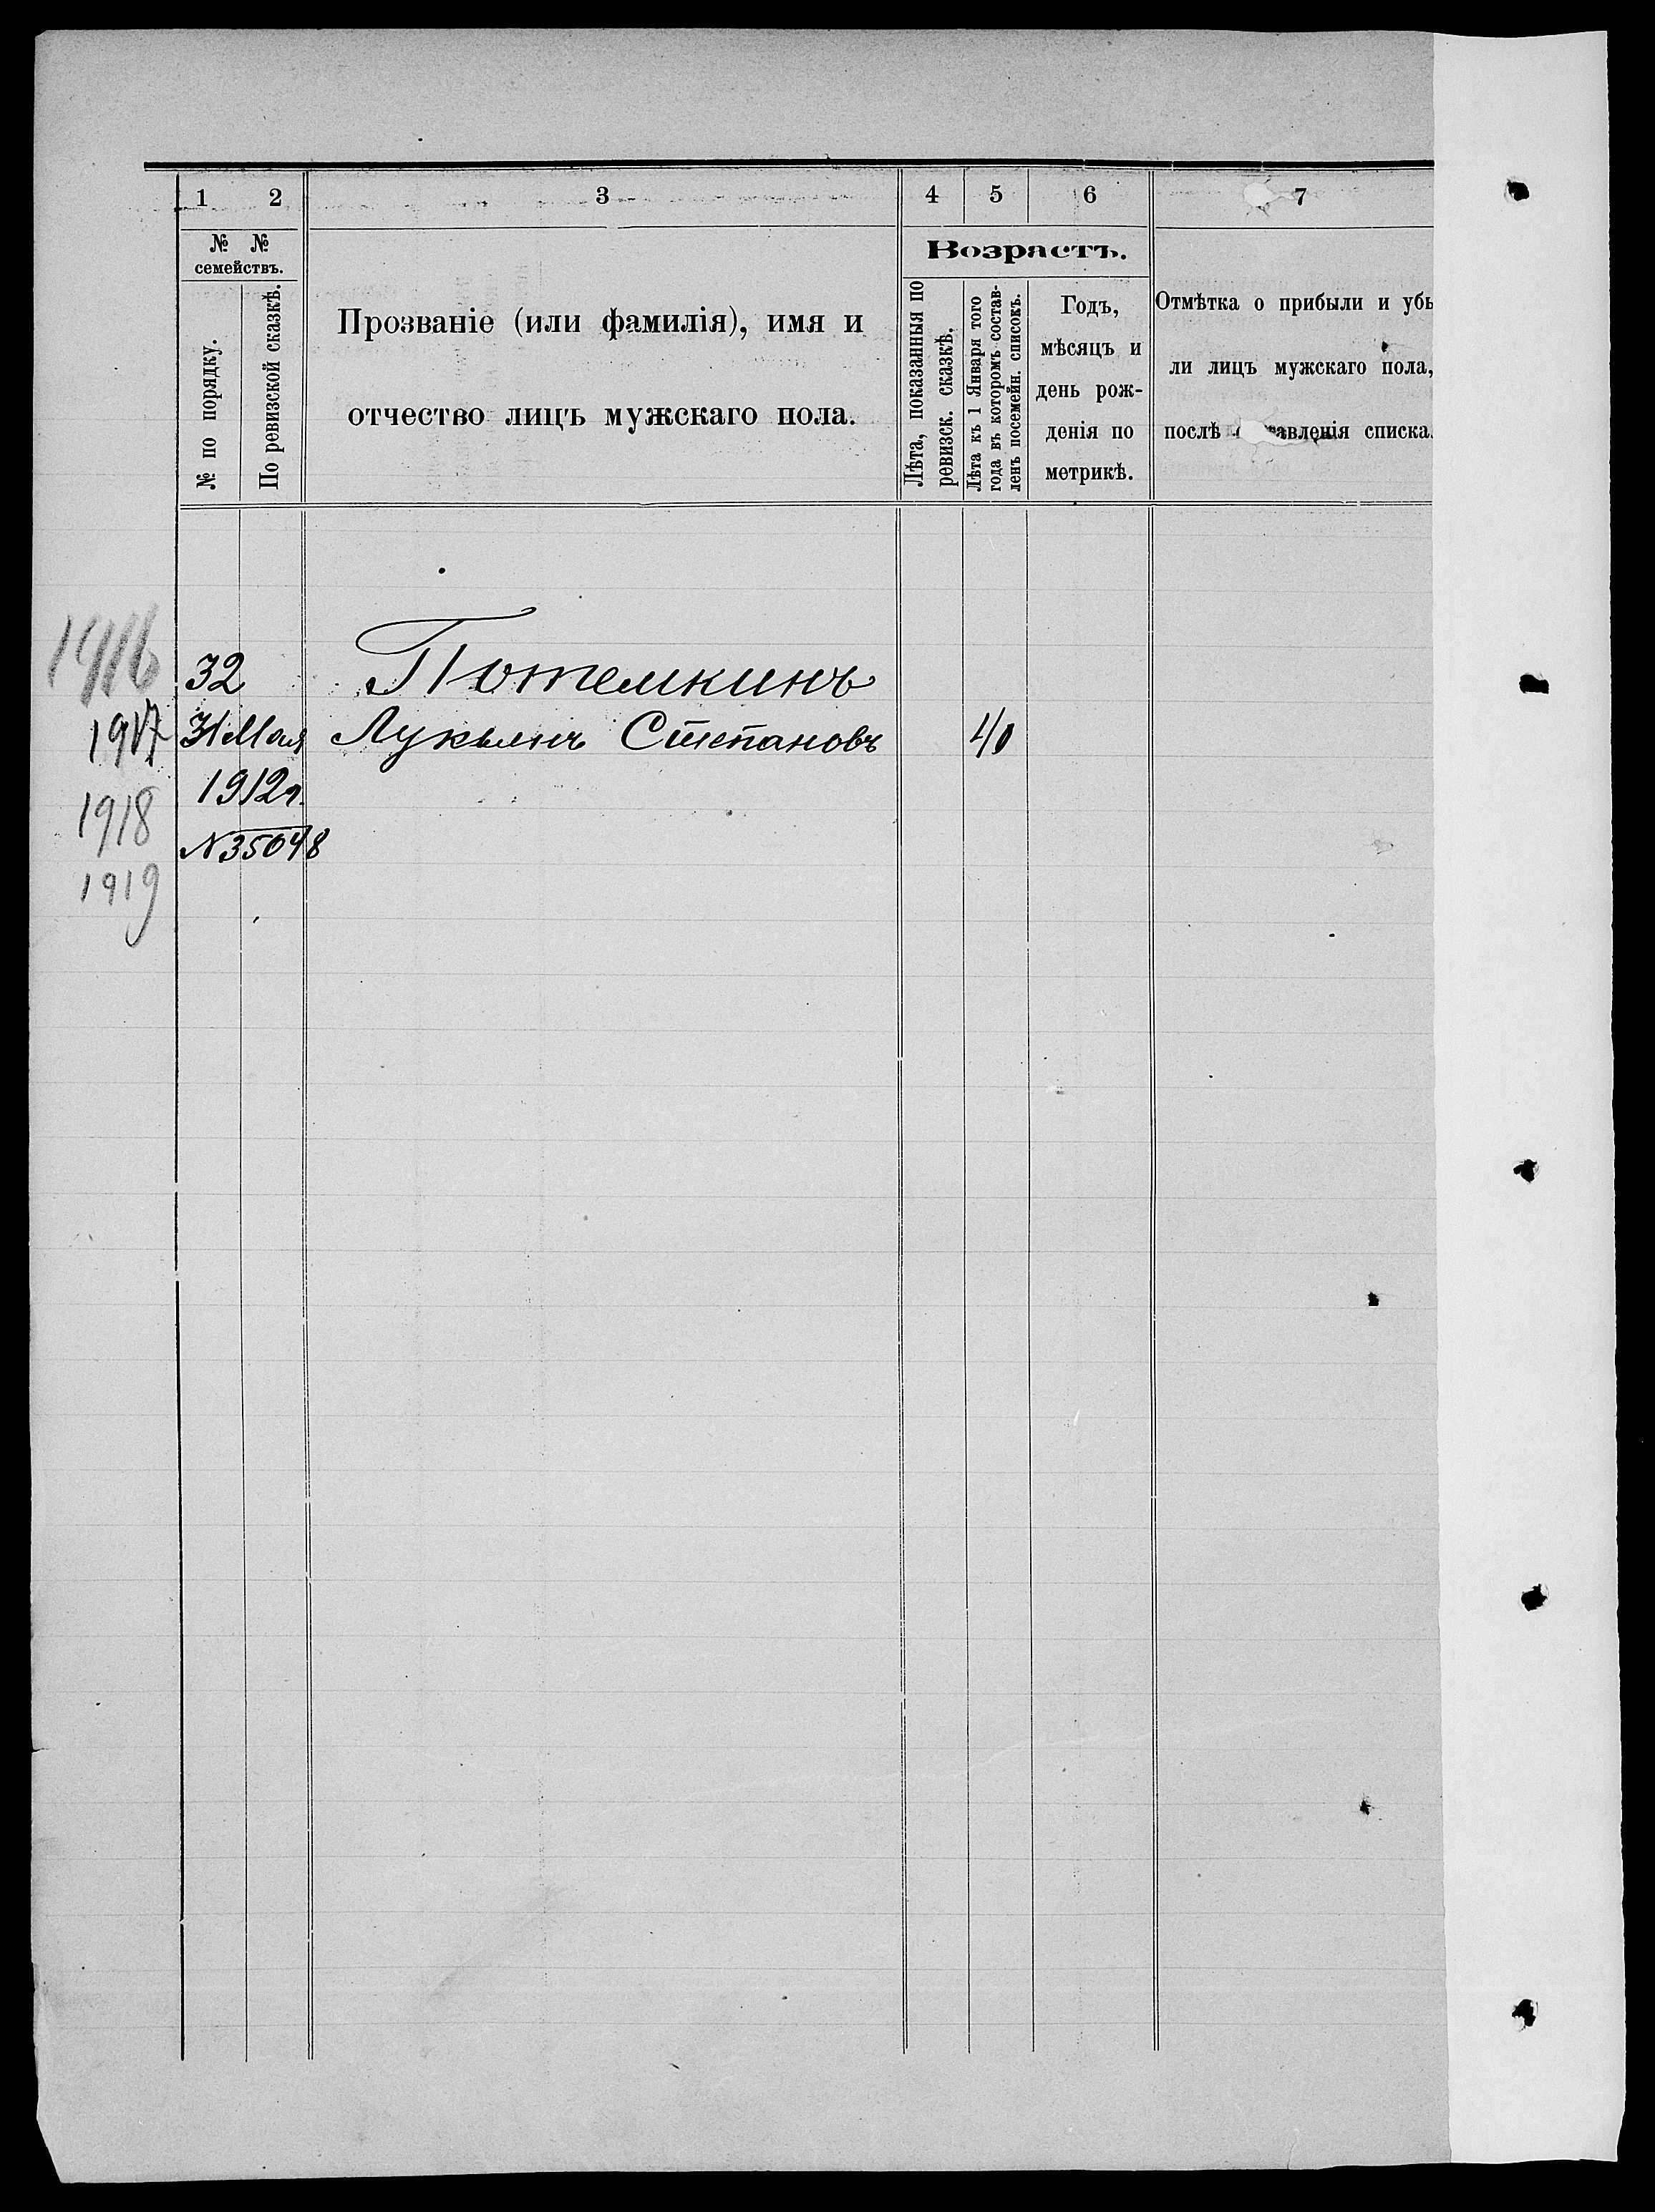 1 2 3 4 5 6 7
№ № семействъ.
№ по порядку.
По ревизской сказкѣ.
Прозваніе (или фамилія), имя и
отчество лицъ мужскаго пола.
Возрастъ.
Лѣта, показанныя по
ревизск. сказкѣ.
Лѣта къ 1 Января того
года въ которомъ состав-
ленъ посемейн. списокъ.
Годъ,
мѣсяцъ и
день рож-
денія по
метрикѣ.
Отмѣтка о прибыли и убы
ли лицъ мужскаго пола,
послѣ тавленія списка.
1916 32 Потемкинъ
1917 31 Мая Лукьянъ Степановъ 40
1912 г.
1918
N 35048
1919